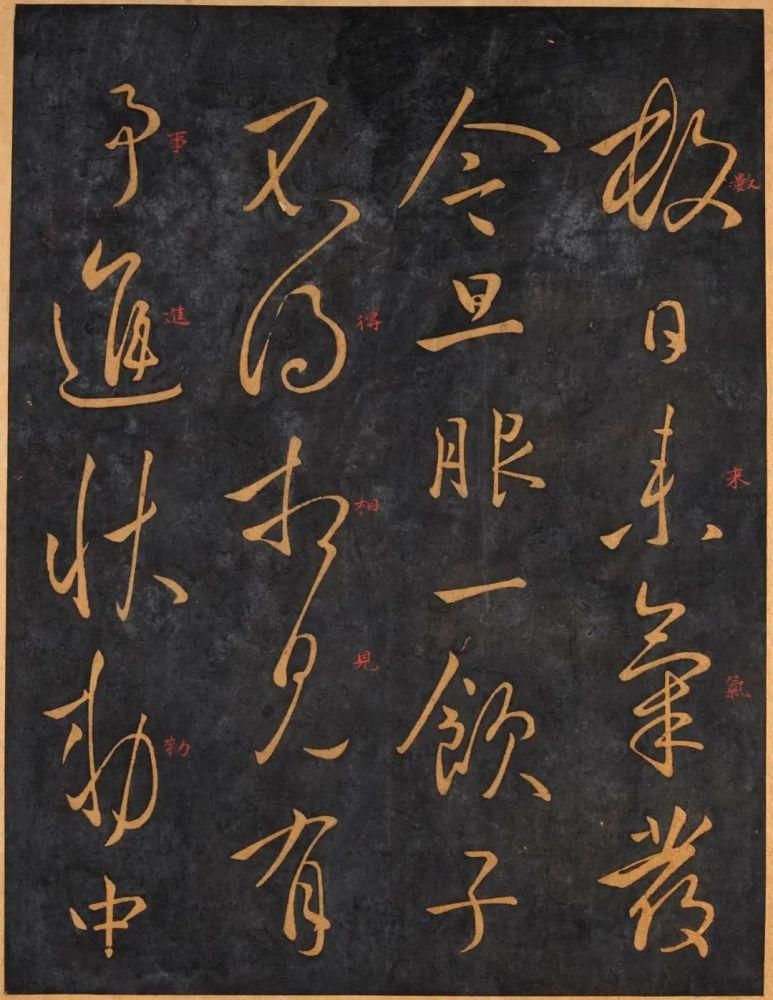 數日来氣發
數
来
氣
今旦服一飲子
不得相見有
得
相
見
事進狀勅中
事
進
勅